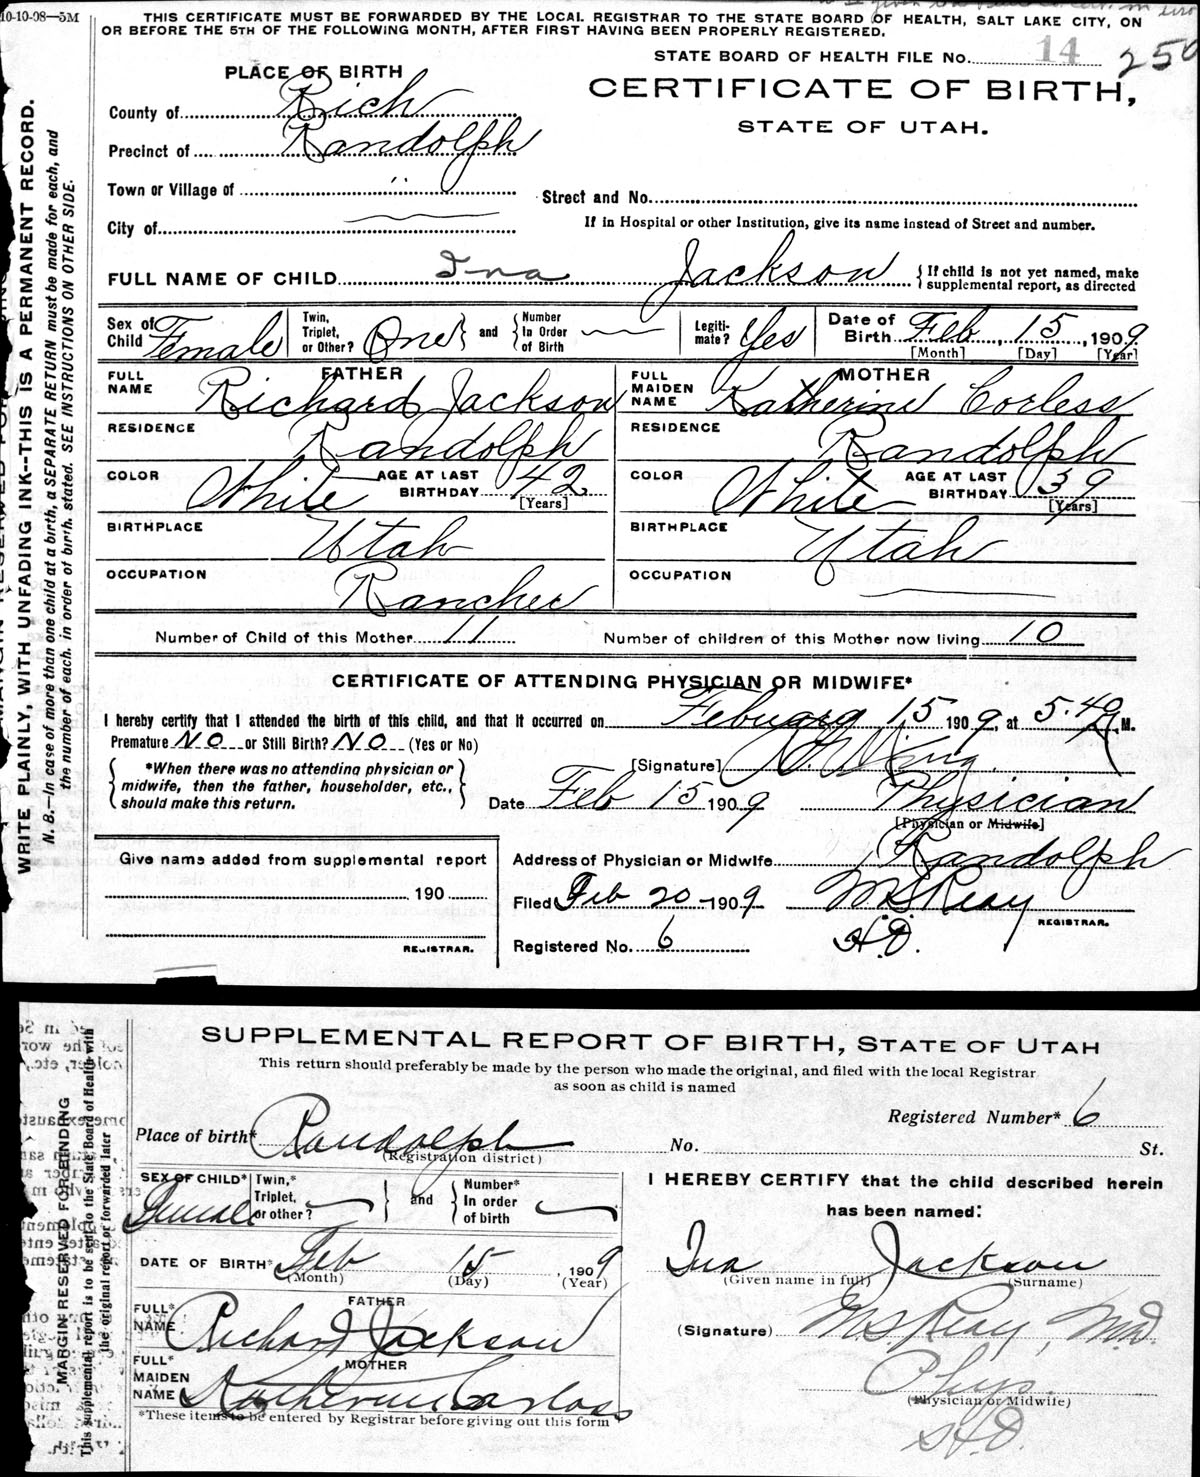 10-10-08—5M
THIS CERTIFICATE MUST BE FORWARDED BY THE LOCAL REGISTRAR TO THE STATE BOARD OF HEALTH, SALT LAKE CITY, ON
OR BEFORE THE 5TH OF THE FOLLOWING MONTH, AFTER FIRST HAVING BEEN PROPERLY REGISTERED.
STATE BOARD OF HEALTH FILE No. 14 250
PLACE OF BIRTH
CERTIFICATE OF BIRTH,
STATE OF UTAH.
County of Rich
Precinct of Randolph
Town or Village of "
Street and No.
City of
If in Hospital or other Institution, give its name instead of Street and number.
FULL NAME OF CHILD Ina Jackson { If child is not yet named, make supplemental report, as directed
Sex of Child Female Twin, Triplet, or Other? One } and { Number In Order of Birth Legiti-mate? Yes Date of Birth Feb, 15, 1909
[Month] [Day] [Year]
FATHER MOTHER
FULL NAME Richard Jackson FULL MAIDEN NAME Katherine Corless
RESIDENCE Randolph RESIDENCE Randolph
COLOR White AGE AT LAST BIRTHDAY 42 [Years] COLOR White AGE AT LAST BIRTHDAY 39 [Years]
BIRTHPLACE Utah BIRTHPLACE Utah
OCCUPATION Rancher OCCUPATION
Number of Child of this Mother 11 Number of children of this Mother now living 10
CERTIFICATE OF ATTENDING PHYSICIAN OR MIDWIFE*
I hereby certify that I attended the birth of this child, and that it occurred on Febuary 15 1909, at 5:40 M.
Premature NO or Still Birth? NO (Yes or No)
{ *When there was no attending physician or midwife, then the father, householder, etc., should make this return. }
[Signature]
Date Feb 15 1909 Physician
[Physician or Midwife]
Give name added from supplemental report
Address of Physician or Midwife Randolph
190
Filed Feb 20 1909 M S Reay
REGISTRAR.
H.O.
REGISTRAR.
Registered No. 6
WRITE PLAINLY, WITH UNFADING INK--THIS IS A PERMANENT RECORD.
N. B.—In case of more than one child at a birth, a SEPARATE RETURN must be made for each, and
the number of each, in order of birth, stated. SEE INSTRUCTIONS ON OTHER SIDE.
SUPPLEMENTAL REPORT OF BIRTH, STATE OF UTAH
This return should preferably be made by the person who made the original, and filed with the local Registrar
as soon as child is named
Registered Number* 6
Place of birth* Randolph No. St.
(Registration district)
SEX OF CHILD* Female Twin,* Triplet, or other? } and { Number* In order of birth
I HEREBY CERTIFY that the child described herein
has been named:
DATE OF BIRTH* Feb 15, 1909
(Month) (Day) (Year)
Ina Jackson
(Given name in full) (Surname)
FATHER
FULL* NAME Richard Jackson
(Signature) M S Reay, M.D.
MOTHER
FULL* MAIDEN NAME Katherine Corless
Phys.
(Physician or Midwife)
H.O.
*These items to be entered by Registrar before giving out this form
MARGIN RESERVED FOR BINDING
This supplemental report is to be sent to the State Board of Health with
the original report or forwarded later